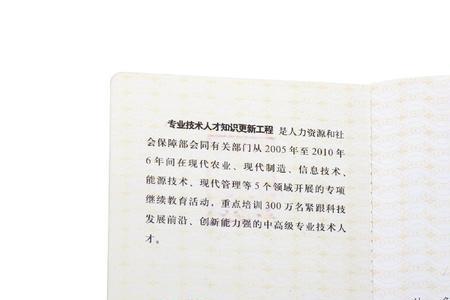 专业技术人才知识更新工程 是人力资源和社
会保障部会同有关部门从 2005 年至 2010 年
6 年间在现代农业、现代制造、信息技术、
能源技术、现代管理等 5 个领域开展的专项
继续教育活动，重点培训 300 万名紧跟科技
发展前沿、创新能力强的中高级专业技术人
才。